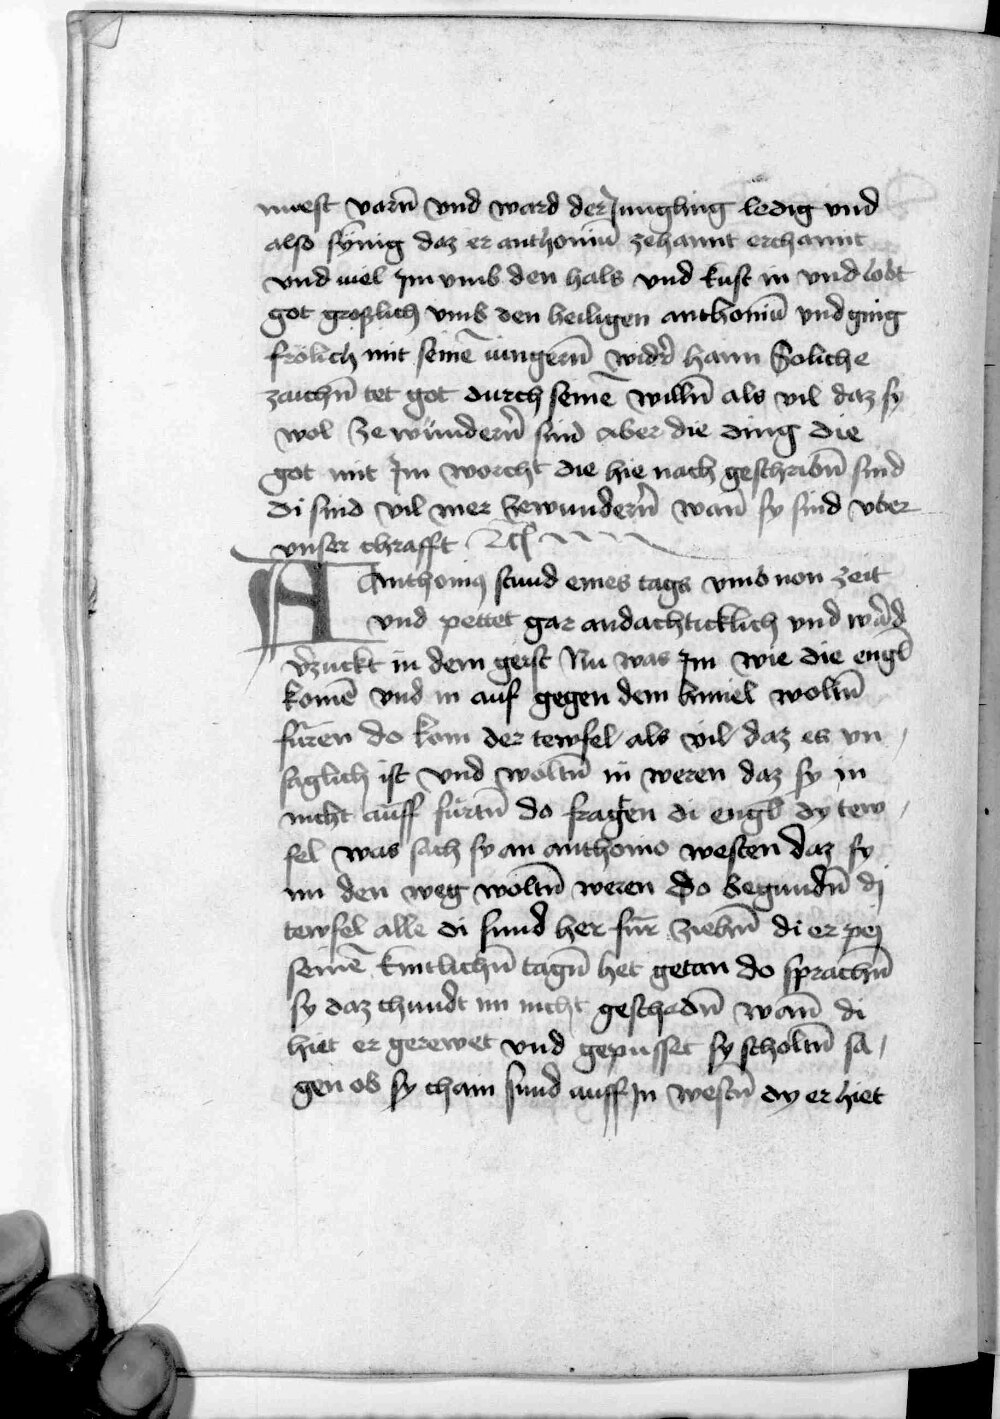 muest varn̄ vnd ward der Jungling ledig vnd
also synnig daz er anthoniū zehannt erchannt
vnd viel Jm vmb den hals vnd kust in vnd lobt
got groslich vmb den heiligen anthoniū vnd ging
frölich mit seinē iungern̄ wider haim Soliche
zaichn̄ tet got durch seinē willn̄ als vil daz sy
wol ze wundern̄ sind Aber die ding die
got mit Jm worcht die hie nach geschribn̄ sind
di sind vil mer zewundern̄ wan̄ sy sind vber
vnser chrafft
Anthonius stund eines tags vmb non zeit
vnd pettet gar andachticklich vnd ward
verzuckt in dem geist Nu was Jm wie die engl
komē vnd in auf gegen dem himel woltn̄
füren do kom der tewfel als vil daz es vn
saglich ist vnd woltn̄ in weren daz sy in
nicht auff fürtn̄ do fragten di engl dy tew
fel was sach sy an anthonio westen daz sy
im den weg woltn̄ weren Do begundn̄ di
tewfel alle di sund her für ziehn̄ di er pej
seinē kintlichn̄ tagn̄ het getan do sprachn̄
sy daz chundt im nicht geschadn̄ wan̄ di
hiet er gerewet vnd gepusset sy scholtn̄ sa
gen ob sy chain sund auff Jn westn̄ dy er hiet